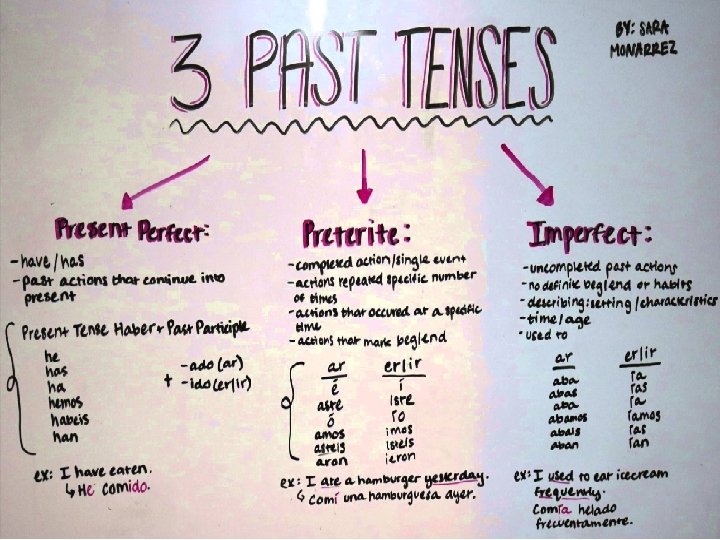 3 PAST TENSES
BY: SARA
MONARREZ
Present Perfect:
- have/has
- past actions that continue into
present
Present Tense Haber + Past Participle
he
has
ha
hemos
habeis
han
+
- ado (ar)
- ido (er/ir)
ex: I have eaten.
↳ He comido.
Preterite:
- completed action/single event
- actions repeated specific number
of times
- actions that occured at a specific
time
- actions that mark beg/end
ar er/ir
é í
aste iste
ó ío
amos imos
asteis isteis
aron ieron
ex: I ate a hamburger yesterday.
↳ Comí una hamburguesa ayer.
Imperfect:
- uncompleted past actions
- no definite beg/end or habits
- describing: setting/characteristics
- time/age
- used to
ar er/ir
aba ía
abas ías
aba ía
abamos íamos
abais ías
aban ían
ex: I used to eat icecream
frequently.
Comía helado
frecuentamente.